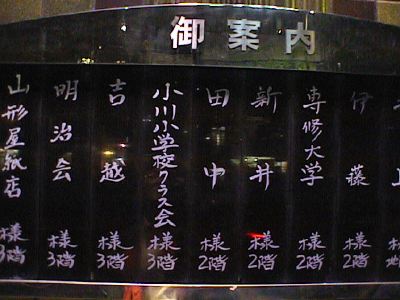 御案内
伊藤 様 2階
専修大学 様 2階
新井 様 2階
田中 様 2階
小川小学校クラス会 様 3階
吉越 様 3階
明治会 様 3階
山形屋紙店 様 3階